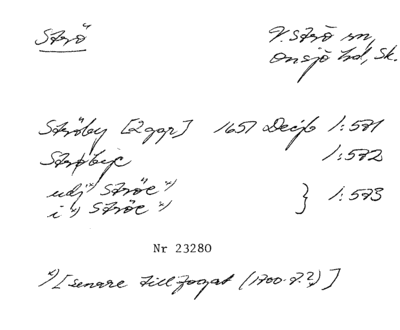 Strö
V. Strö sn,
Onsjö hd, Sk.
Strøby [2 ggr] 1651 Decjb 1:571
Strøbije 1:572
udj *) Ströe *)
i *) Ströe *) } 1:573
Nr 23280
*) [senare tillfogat (1700-t.?)]